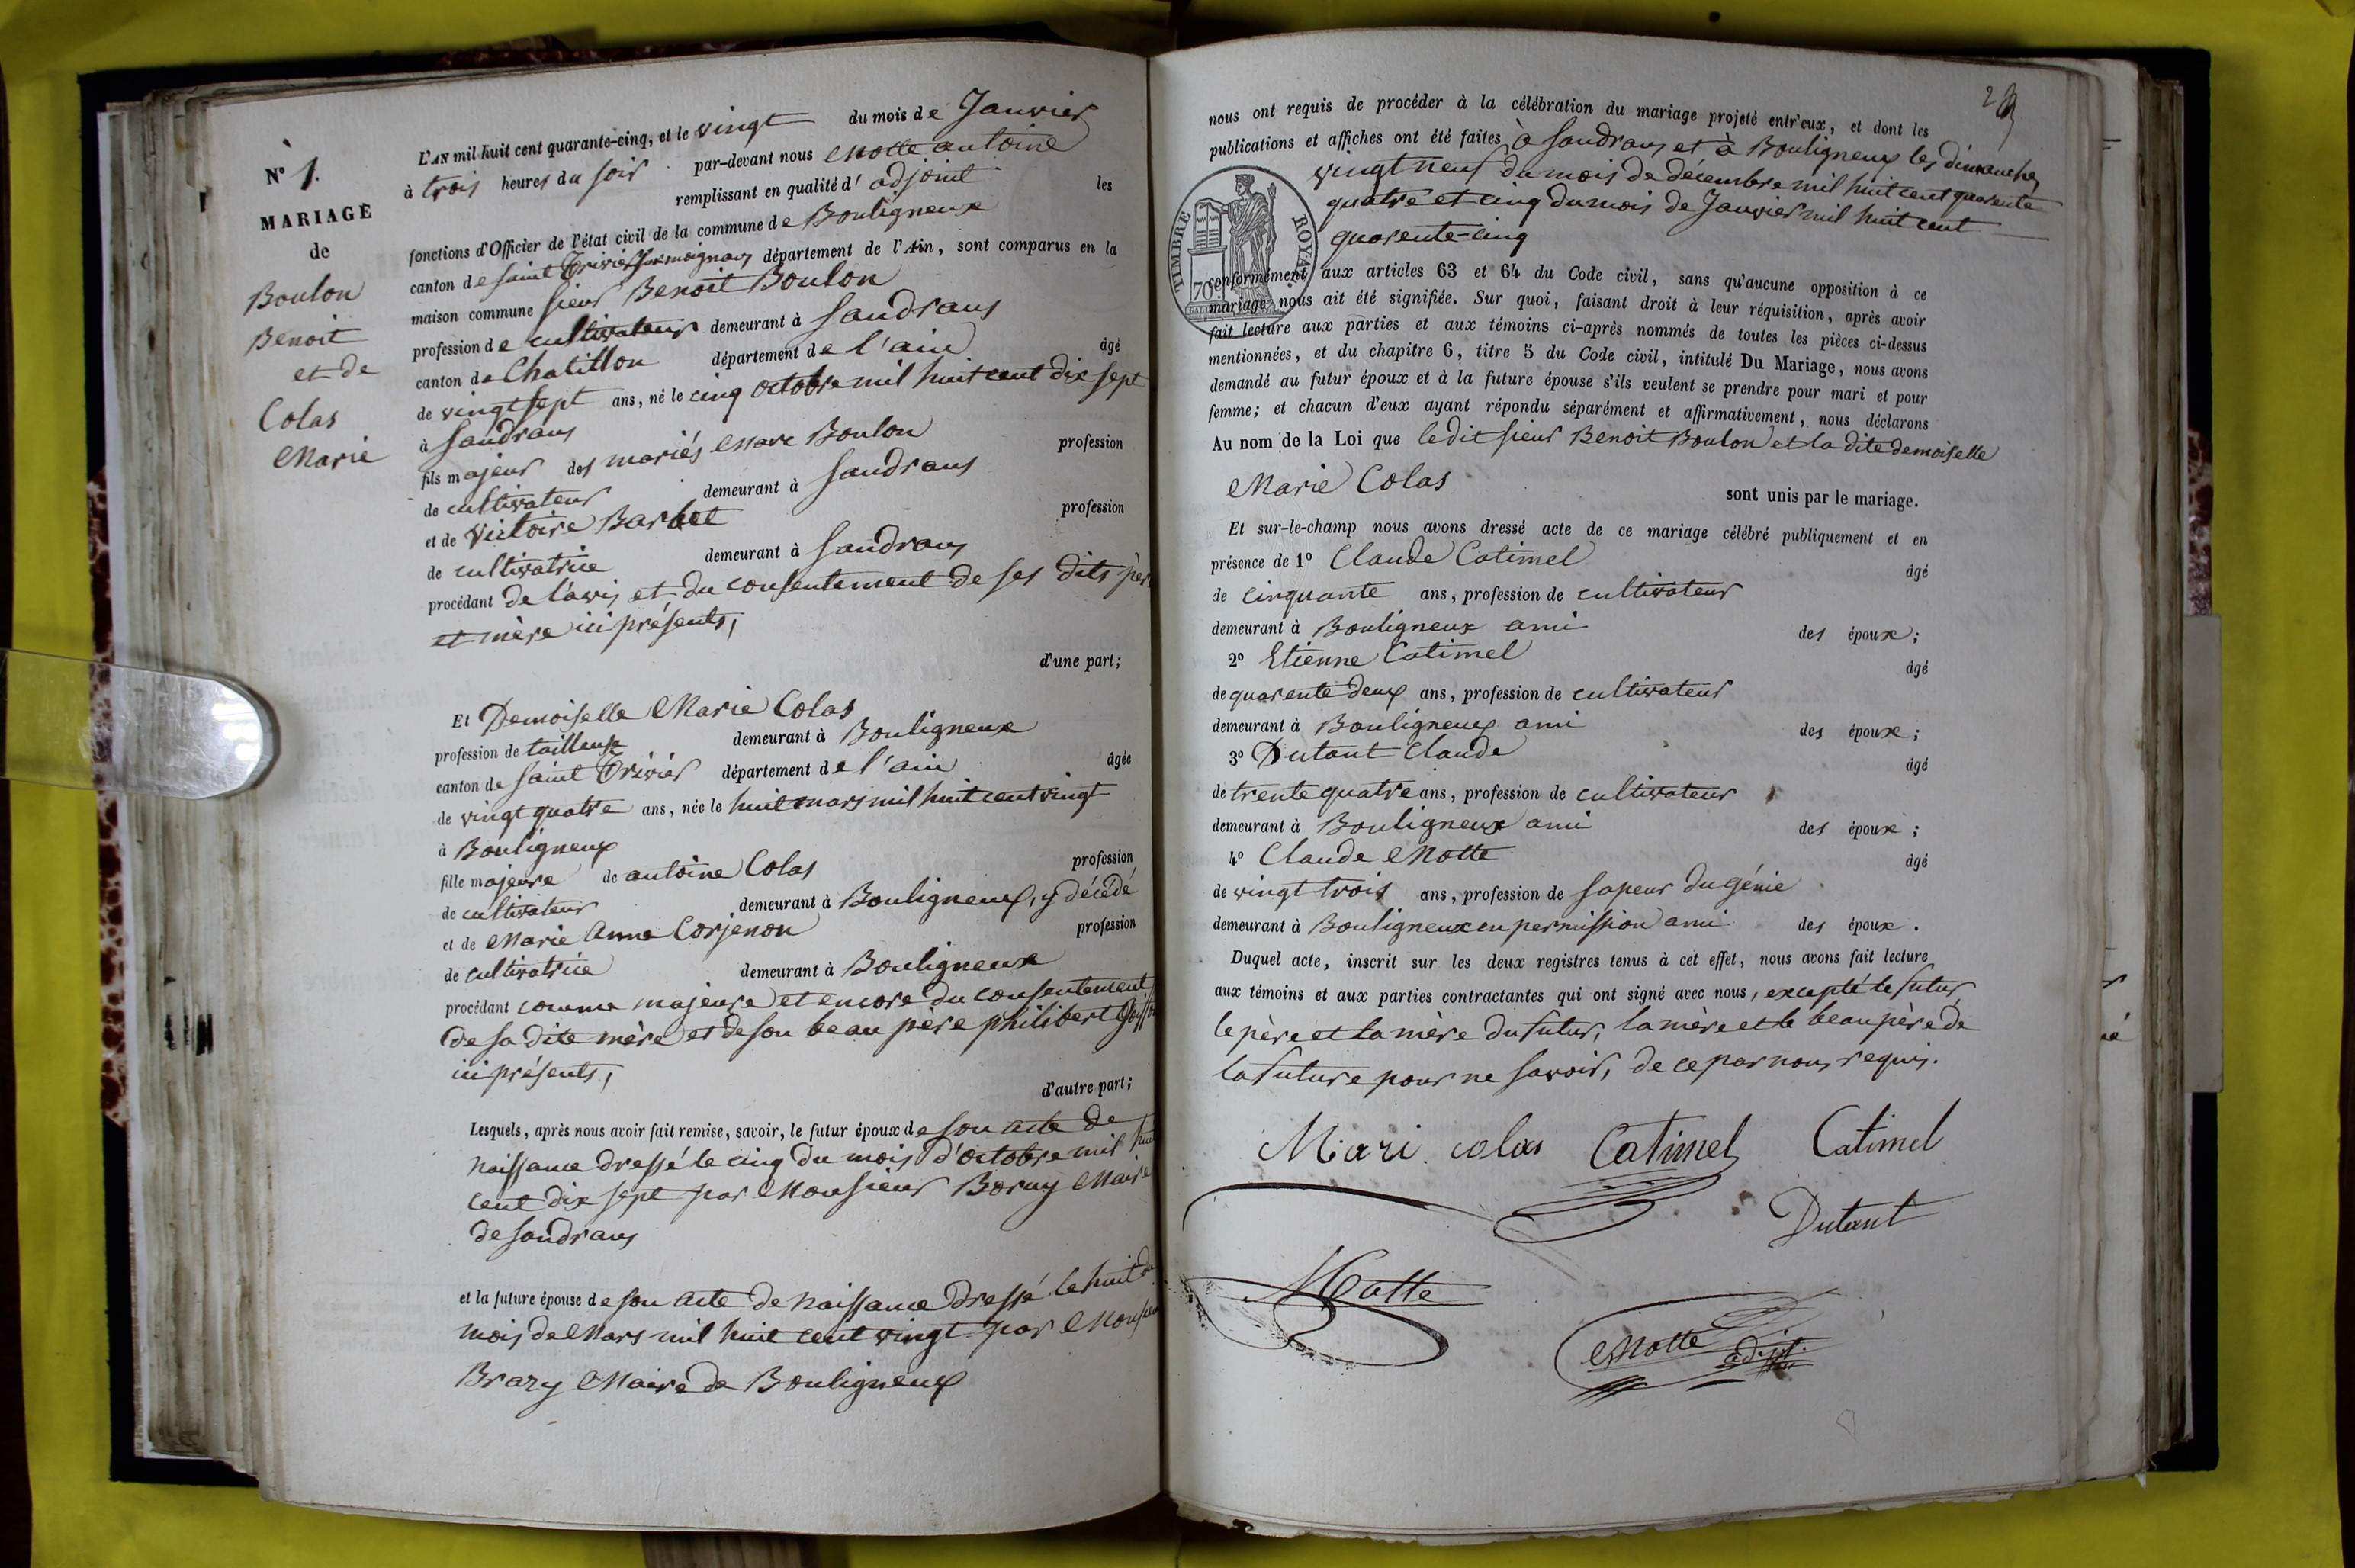 N° 1.
MARIAGE
de
Boulon
Benoit
et de
Colas
Marie
L'AN mil huit cent quarante-cinq, et le vingt du mois de Janvier
à trois heures du soir par-devant nous Motte antoine
remplissant en qualité d' adjoint les
fonctions d'Officier de l'état civil de la commune de Bouligneux
canton de saint Trivier sur moignans département de l'Ain, sont comparus en la
maison commune sieur Benoit Boulon
profession de cultivateur demeurant à Sandrans
canton de Chatillon département de l'ain âgé
de vingt sept ans, né le cinq octobre mil huit cent dix sept
à Sandrans
fils majeur des mariés Marc Boulon profession
de cultivateur demeurant à Sandrans
et de Victoire Barbet profession
de cultivatrice demeurant à Sandrans
procédant de l'avis et du consentement de ses dits père
et mère ici présents,
d'une part;
Et Demoiselle Marie Colas
profession de tailleuse demeurant à Bouligneux
canton de Saint Trivier département de l'ain âgée
de vingt quatre ans, née le huit mars mil huit cent vingt
à Bouligneux
fille majeure de antoine Colas profession
de cultivateur demeurant à Bouligneux, y décédé
et de Marie Anne Corjenon profession
de cultivatrice demeurant à Bouligneux
procédant comme majeure et encore du consentement
de sa dite mère et de son beau père philibert
ici présents,
d'autre part;
Lesquels, après nous avoir fait remise, savoir, le futur époux de son acte de
naissance dressé le cinq du mois d'octobre mil huit
cent dix sept par Monsieur Maire
de Sandrans
et la future épouse de son acte de naissance dressé le huit du
mois de Mars mil huit cent vingt par Monsieur
Brazy Maire de Bouligneux
nous ont requis de procéder à la célébration du mariage projeté entr'eux, et dont les
publications et affiches ont été faites, à Sandrans et à Bouligneux les dimanches
vingt neuf du mois de décembre mil huit cent quarente
quatre et cinq du mois de Janvier mil huit cent
quarente-cinq
TIMBRE ROYAL
70
conformément aux articles 63 et 64 du Code civil, sans qu'aucune opposition à ce
mariage nous ait été signifiée. Sur quoi, faisant droit à leur réquisition, après avoir
fait lecture aux parties et aux témoins ci-après nommés de toutes les pièces ci-dessus
mentionnées, et du chapitre 6, titre 5 du Code civil, intitulé Du Mariage, nous avons
demandé au futur époux et à la future épouse s'ils veulent se prendre pour mari et pour
femme; et chacun d'eux ayant répondu séparément et affirmativement, nous déclarons
Au nom de la Loi que le dit sieur Benoit Boulon et la dite demoiselle
Marie Colas
sont unis par le mariage.
Et sur-le-champ nous avons dressé acte de ce mariage célébré publiquement et en
présence de 1° Claude Catimel âgé
de cinquante ans, profession de cultivateur
demeurant à Bouligneux ami des époux;
2° Etienne Catimel âgé
de quarente deux ans, profession de cultivateur
demeurant à Bouligneux ami des époux;
3° Dutant Claude âgé
de trente quatre ans, profession de cultivateur
demeurant à Bouligneux ami des époux;
4° Claude Motte âgé
de vingt trois ans, profession de sapeur du génie
demeurant à Bouligneux en permission ami des époux.
Duquel acte, inscrit sur les deux registres tenus à cet effet, nous avons fait lecture
aux témoins et aux parties contractantes qui ont signé avec nous, excepté le futur
le père et la mère du futur, la mère et le beau père de
la future pour ne savoir, de ce par nous requis.
Mari colas Catimel Catimel
Dutant
Motte
Motte adjt.